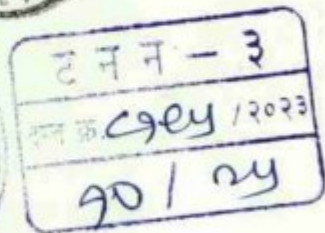 ट न न - ३
दस्त क्र. ८१९५ / २०२३
१० / २५